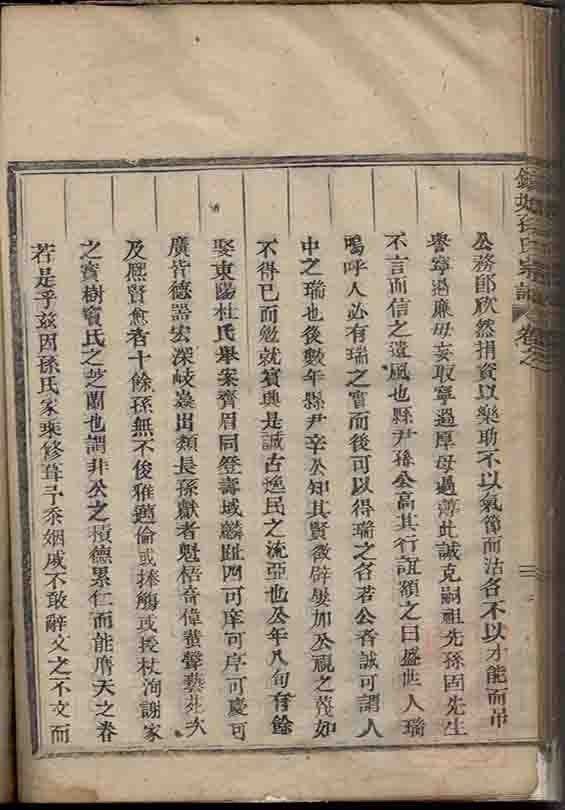 公務即欣然捐資以樂助不以氣節而沽名不以才能而吊
譽寧過廉毋妄取寧過厚毋過薄此誠克嗣祖先孫固先生
不言而信之遺風也縣尹孫公高其行誼額之曰盛世人瑞
嗚呼人必有瑞之實而後可以得瑞之名若公者誠可謂人
中之瑞也後數年縣尹辛公知其賢徵辟婁加公視之蔑如
不得已而勉就賓興是誠古逸民之流亞也公年八旬有餘
娶東陽杜氏舉案齊眉同登壽域麟趾四可庠可序可慶可
廣皆德器宏深岐嶷出類長孫獻者魁梧奇偉蜚聲藝苑次
及熙賢愈者十餘孫無不俊雅邁倫或捧觴或授杖洵謝家
之寶樹竇氏之芝蘭也謂非公之積德累仁而能膺天之眷
若是乎茲因孫氏家乘修葺予忝姻戚不敢辭文之不文而
孫氏宗譜 卷之